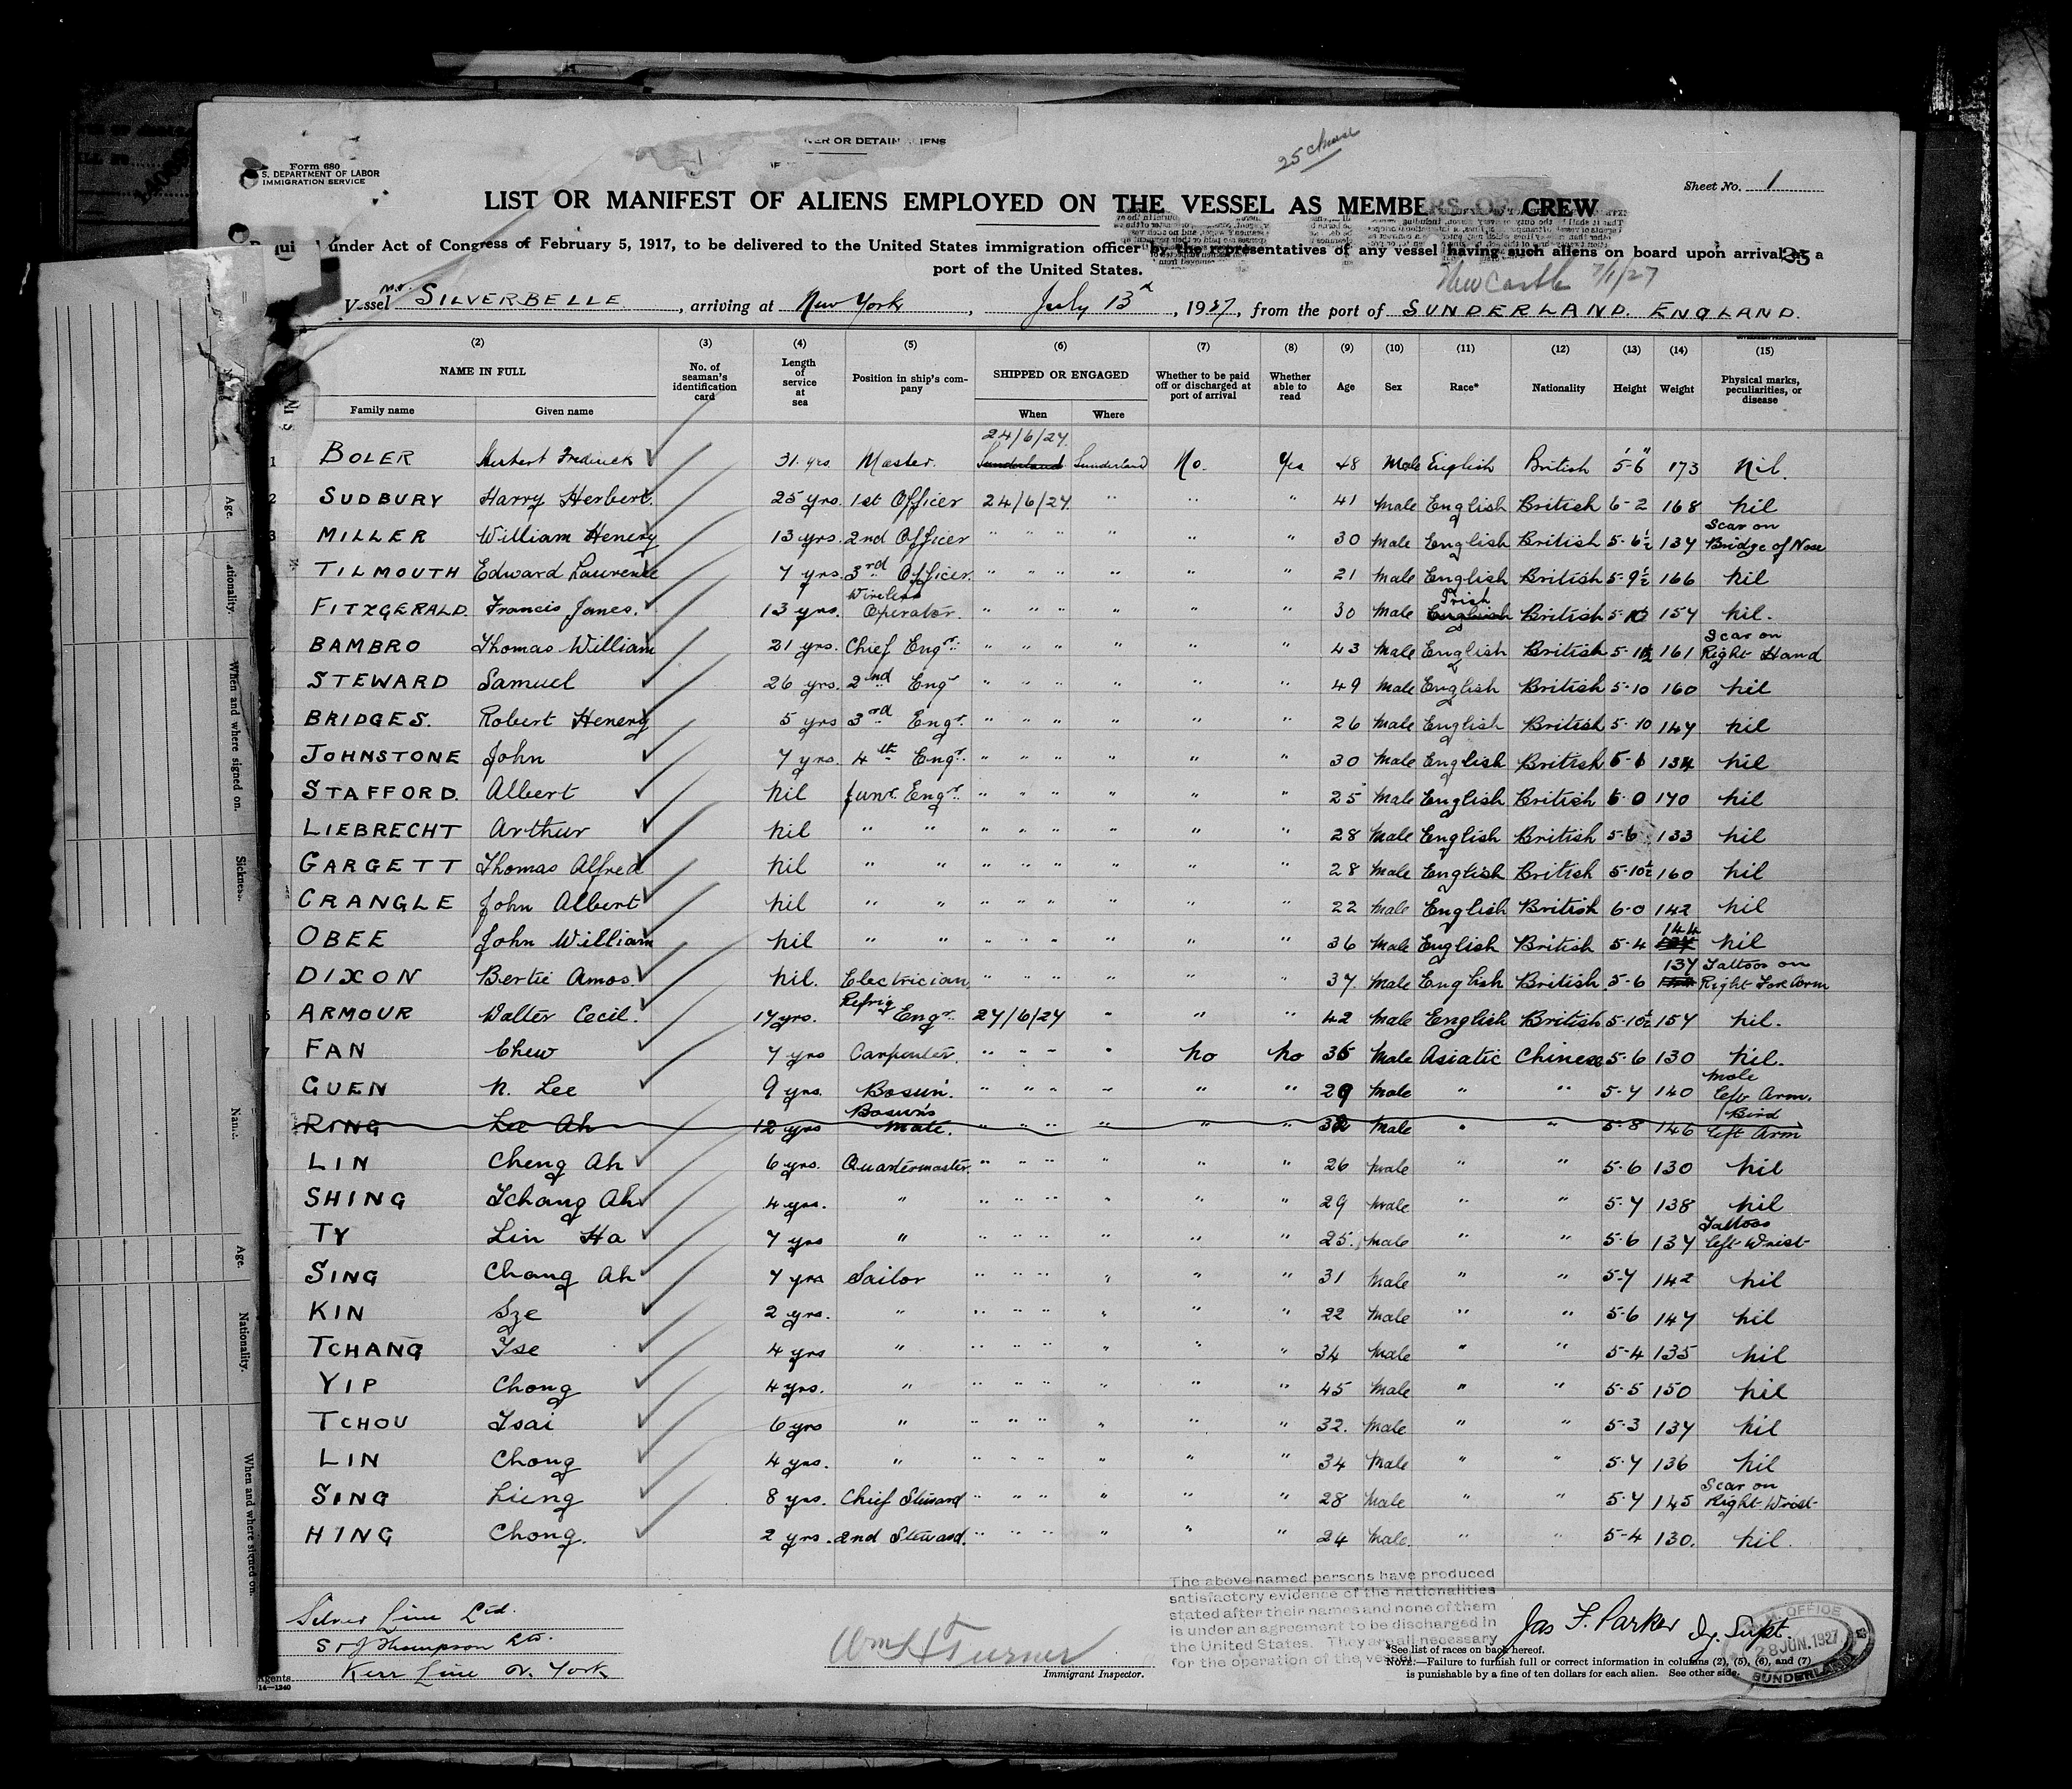 VER OR DETAIN ALIENS
25 Chinese
Form 680
S. DEPARTMENT OF LABOR
IMMIGRATION SERVICE
Sheet No. 1
LIST OR MANIFEST OF ALIENS EMPLOYED ON THE VESSEL AS MEMBERS OF CREW
under Act of Congress of February 5, 1917, to be delivered to the United States immigration officer by the representatives of any vessel having such aliens on board upon arrival at a
port of the United States.
35
New Castle 7/1/27
Vessel m.v. SILVERBELLE, arriving at New York, July 13th, 1927, from the port of SUNDERLAND. ENGLAND.
(2) (3) (4) (5) (6) (7) (8) (9) (10) (11) (12) (13) (14) (15)
NAME IN FULL No. of seaman's identification card Length of service at sea Position in ship's company SHIPPED OR ENGAGED Whether to be paid off or discharged at port of arrival Whether able to read Age Sex Race* Nationality Height Weight Physical marks, peculiarities, or disease
Family name Given name When Where
1 BOLER Herbert Frederick 31 yrs Master. 24/6/27 Sunderland Sunderland No. Yes 48 Male English British 5'-6" 173 Nil.
2 SUDBURY Harry Herbert. 25 yrs. 1st Officer 24/6/27 " " " 41 Male English British 6-2 168 nil
3 MILLER William Henery 13 yrs. 2nd Officer " " " " " " 30 Male English British 5-6½ 137 Scar on Bridge of Nose
TILMOUTH Edward Laurence 7 yrs. 3rd Officer. " " " " " " 21 Male English British 5-9½ 166 nil
FITZGERALD. Francis James. 13 yrs. Wireless Operator. " " " " " " 30 Male English Irish British 5-10 157 nil.
BAMBRO Thomas William 21 yrs. Chief Engr. " " " " " " 43 Male English British 5-11½ 161 Scar on Right Hand
STEWARD Samuel 26 yrs. 2nd Engr " " " " " " 49 Male English British 5-10 160 nil
BRIDGES. Robert Henery 5 yrs 3rd Engr. " " " " " " 26 Male English British 5-10 147 nil
JOHNSTONE John 7 yrs. 4th Engr. " " " " " " 30 Male English British 5-6 134 nil
STAFFORD. Albert nil Junr. Engr. " " " " " " 25 Male English British 6-0 170 nil
LIEBRECHT Arthur nil " " " " " " " " 28 Male English British 5-6 133 nil
GARGETT Thomas Alfred nil " " " " " " " " 28 Male English British 5-10½ 160 nil
CRANGLE John Albert nil " " " " " " " " 22 Male English British 6-0 142 nil
OBEE John William nil " " " " " " " " 36 Male English British 5-4 144 nil
DIXON Bertie Amos. nil. Electrician " " " " " " 37. Male English British. 5-6 137 Tattoos on Right Fore Arm
ARMOUR Walter Cecil. 17 yrs. Refrig Engr. 27/6/27 " " " 42 Male English British 5-10½ 157 nil.
FAN Chew 7 yrs Carpenter. " " " " no no 35 Male Asiatic Chinese 5-6 130 nil.
GUEN N. Lee 9 yrs. Bosun. " " " " " " 29 Male " " 5-7 140 Mole left Arm.
RING Lee Ah 12 yrs Bosun's Mate. " " " " " " 32 Male " " 5-8 146 Bird left Arm
LIN Cheng Ah 6 yrs. Quartermaster. " " " " " " 26 Male " " 5-6 130 nil
SHING Tchang Ah 4 yrs. " " " " " " " 29 Male " " 5-7 138 nil
TY Lin Ha 7 yrs " " " " " " " 25. Male " " 5-6 137 Tattoos left Wrist
SING Chang Ah 7 yrs Sailor " " " " " " 31 Male " " 5-7 142 nil
KIN Sze 2 yrs. " " " " " " " 22 Male " " 5-6 147 nil
TCHANG Tse 4 yrs " " " " " " " 34 Male " " 5-4 135 nil
YIP Chong 4 yrs. " " " " " " " 45 Male " " 5-5 150 nil
TCHOU Tsai 6 yrs " " " " " " " 32. Male " " 5-3 137 nil
LIN Chong 4 yrs. " " " " " " " 34 Male " " 5-7 136 nil
SING Lieng 8 yrs. Chief Steward " " " " " " 28 Male " " 5-7 145 Scar on Right Wrist
HING Chong. 2 yrs. 2nd Steward. " " " " " " 24 Male. " " 5-4 130. nil.
Silver Line Ltd.
S & J Thompson Ltd.
Kerr Line N. York
Agents
14—1240
Wm H Turner
Immigrant Inspector.
The above named persons have produced
satisfactory evidence of the nationalities
stated after their names and none of them
is under an agreement to be discharged in
the United States. They are all necessary
for the operation of the vessel.
Jas F. Parker Dy. Supt.
OFFICE
28 JUN. 1927
SUNDERLAND
*See list of races on back hereof.
NOTE.—Failure to furnish full or correct information in columns (2), (5), (6), and (7)
is punishable by a fine of ten dollars for each alien. See other side.
Age.
Nationality.
When and where signed on.
Sickness.
Name.
Age.
Nationality.
When and where signed on.